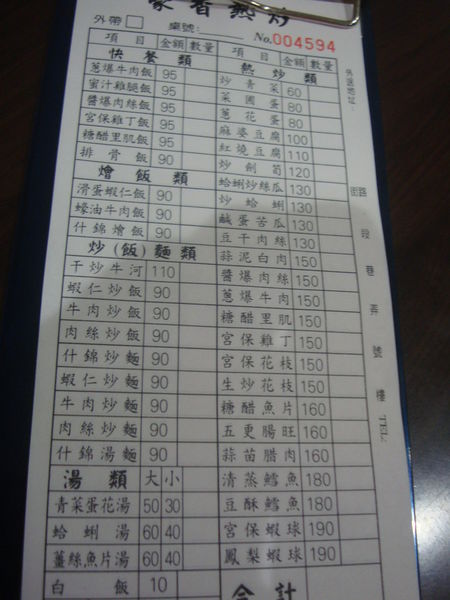 家香熱炒
外帶 桌號: No.004594
項目 金額 數量
快餐類
蔥爆牛肉飯 95
蜜汁雞腿飯 95
醬爆肉絲飯 95
宮保雞丁飯 95
糖醋里肌飯 95
排骨飯 90
燴飯類
滑蛋蝦仁飯 90
蠔油牛肉飯 90
什錦燴飯 90
炒(飯)麵類
干炒牛河 110
蝦仁炒飯 90
牛肉炒飯 90
肉絲炒飯 90
什錦炒飯 90
蝦仁炒麵 90
牛肉炒麵 90
肉絲炒麵 90
什錦湯麵 90
湯類 大 小
青菜蛋花湯 50 30
蛤蜊湯 60 40
薑絲魚片湯 60 40
白飯 10
項目 金額 數量
熱炒類
炒青菜 60
菜圃蛋 80
蔥花蛋 80
麻婆豆腐 100
紅燒豆腐 110
炒劍筍 120
蛤蜊炒絲瓜 130
炒蛤蜊 130
鹹蛋苦瓜 130
豆干肉絲 130
蒜泥白肉 150
醬爆肉絲 150
蔥爆牛肉 150
糖醋里肌 150
宮保雞丁 150
宮保花枝 150
生炒花枝 150
糖醋魚片 160
五更腸旺 160
蒜苗腊肉 160
清蒸鱈魚 180
豆酥鱈魚 180
宮保蝦球 190
鳳梨蝦球 190
合計
外送地址:
街路 段 巷 弄 號 樓 TEL: